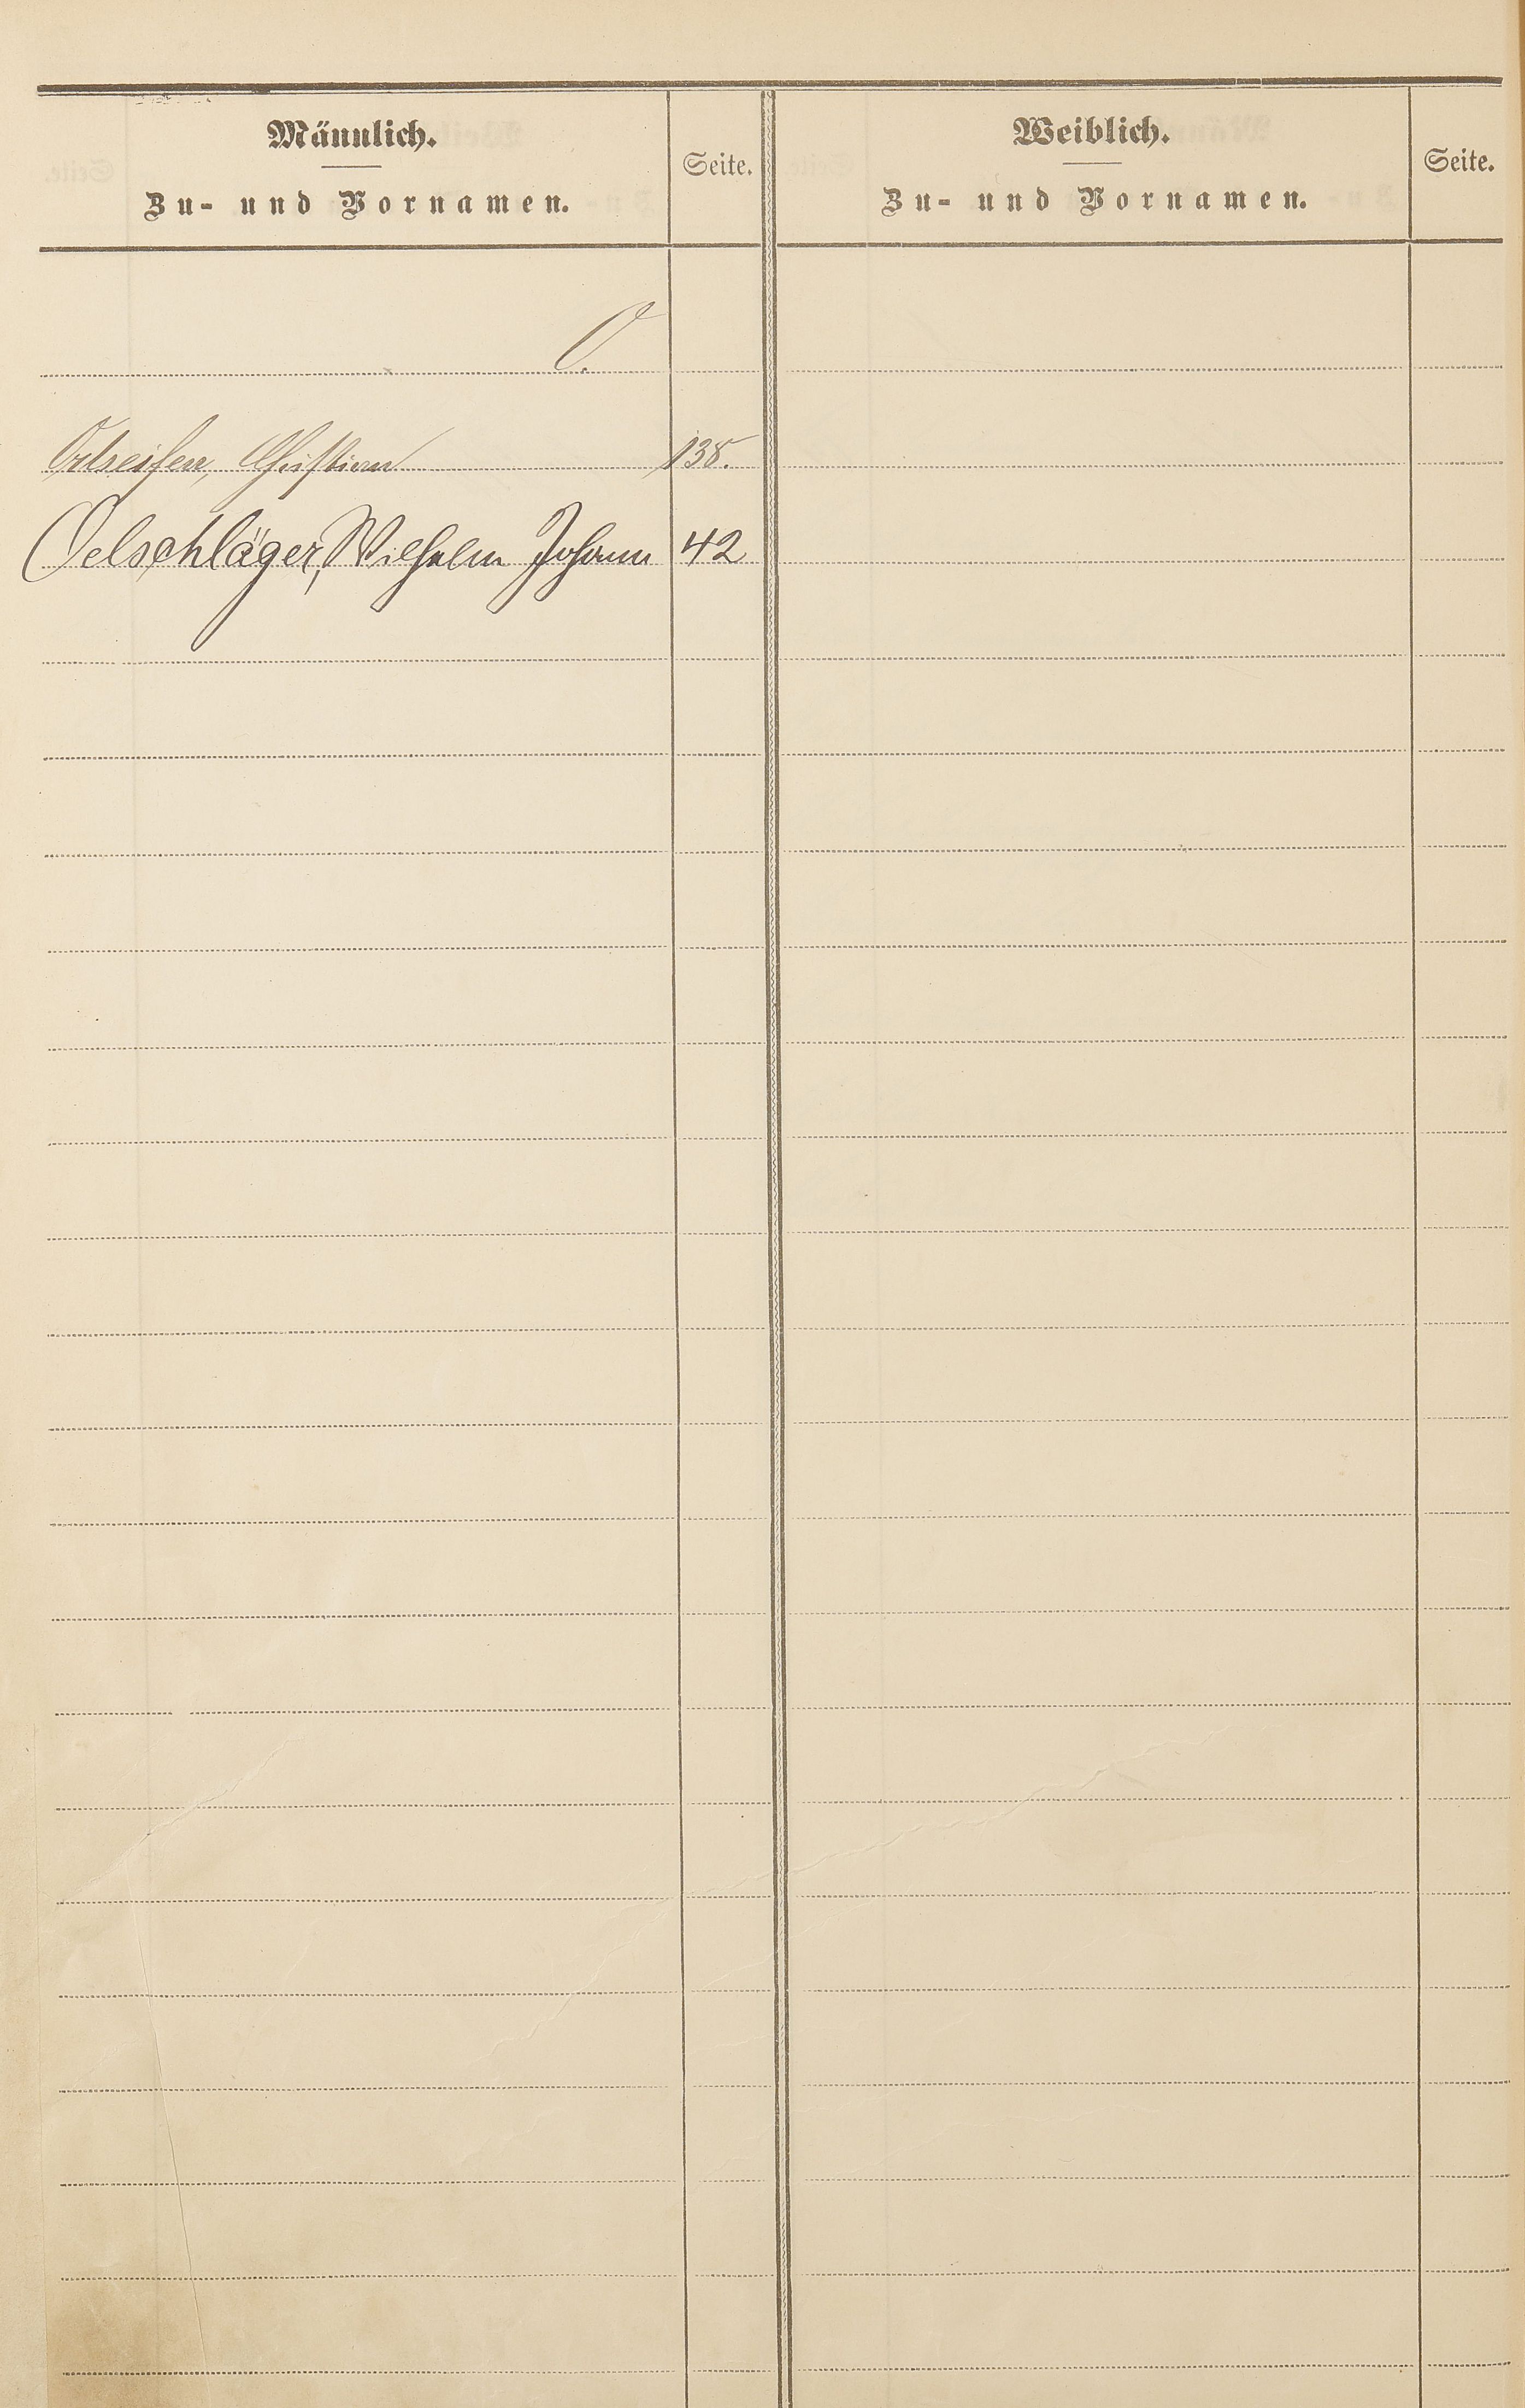 Männlich.
Zu- und Vornamen.
Seite.
Weiblich.
Zu- und Vornamen.
Seite.
O.
Ortseifen, Christian 138.
Oelschläger, Wilhelm Johann 42